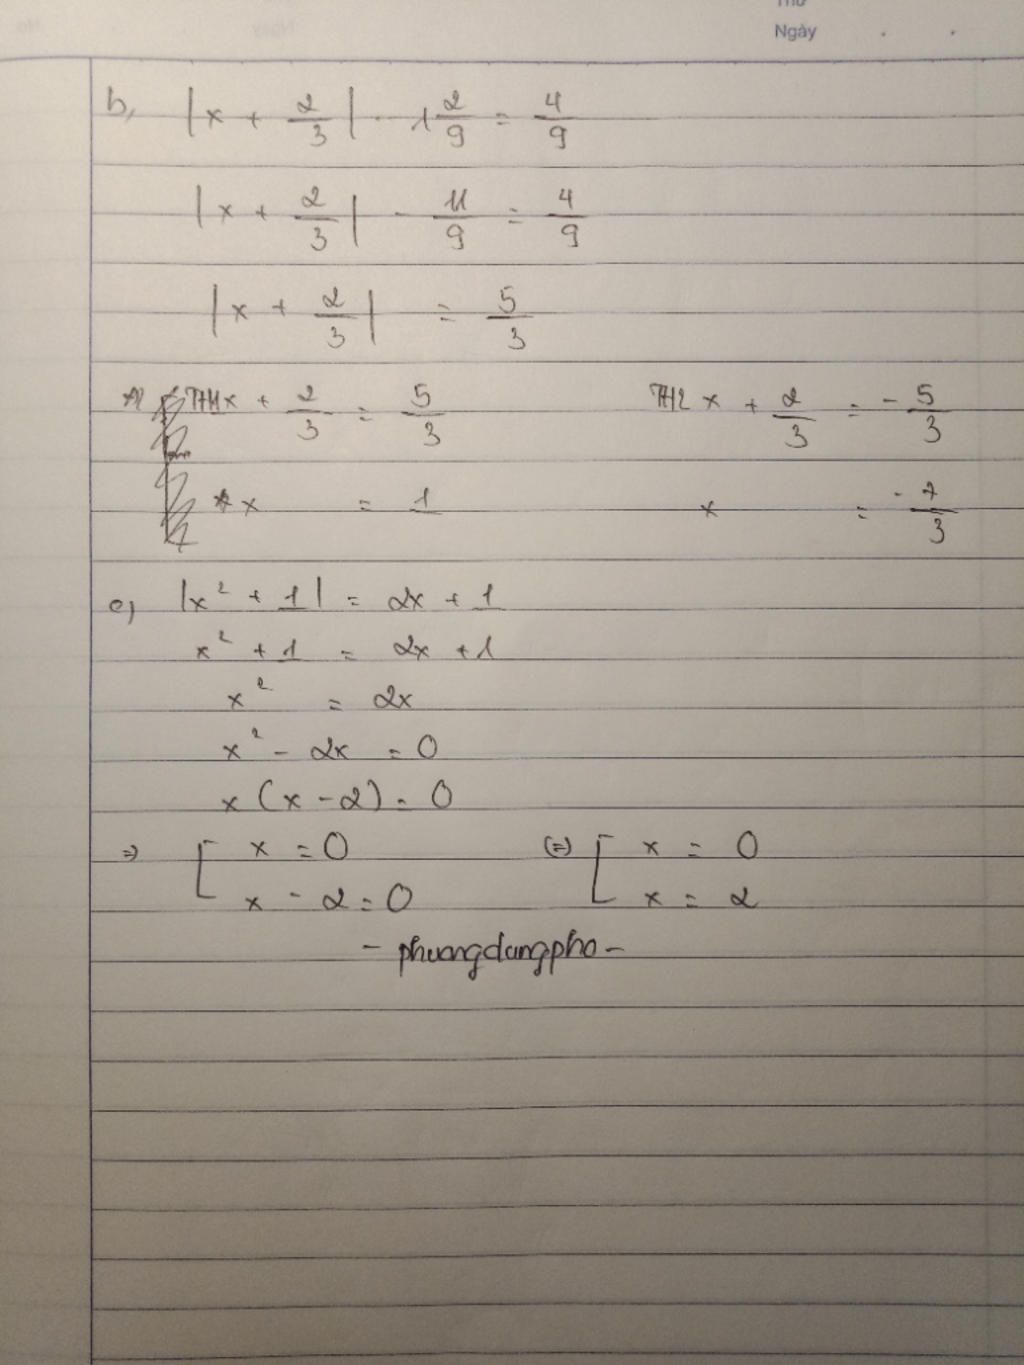 Thứ
Ngày . .
b, |x + 2/3| - 1 2/9 = 4/9
|x + 2/3| - 11/9 = 4/9
|x + 2/3| = 5/3
TH1 x + 2/3 = 5/3 TH2 x + 2/3 = - 5/3
x = 1 x = - 7/3
c, |x² + 1| = 2x + 1
x² + 1 = 2x + 1
x² = 2x
x² - 2x = 0
x (x - 2) = 0
=> [ x = 0 (=) [ x = 0
x - 2 = 0 x = 2
- phuongdangpho -